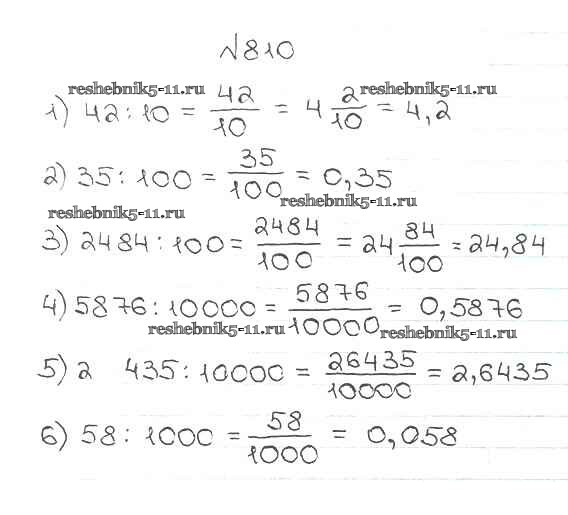 №810
reshebnik5-11.ru reshebnik5-11.ru
1) 42 : 10 = 42/10 = 4 2/10 = 4,2
2) 35 : 100 = 35/100 = 0,35
reshebnik5-11.ru
reshebnik5-11.ru
3) 2484 : 100 = 2484/100 = 24 84/100 = 24,84
4) 5876 : 10000 = 5876/10000 = 0,5876
reshebnik5-11.ru reshebnik5-11.ru
5) 2 435 : 10000 = 26435/10000 = 2,6435
6) 58 : 1000 = 58/1000 = 0,058